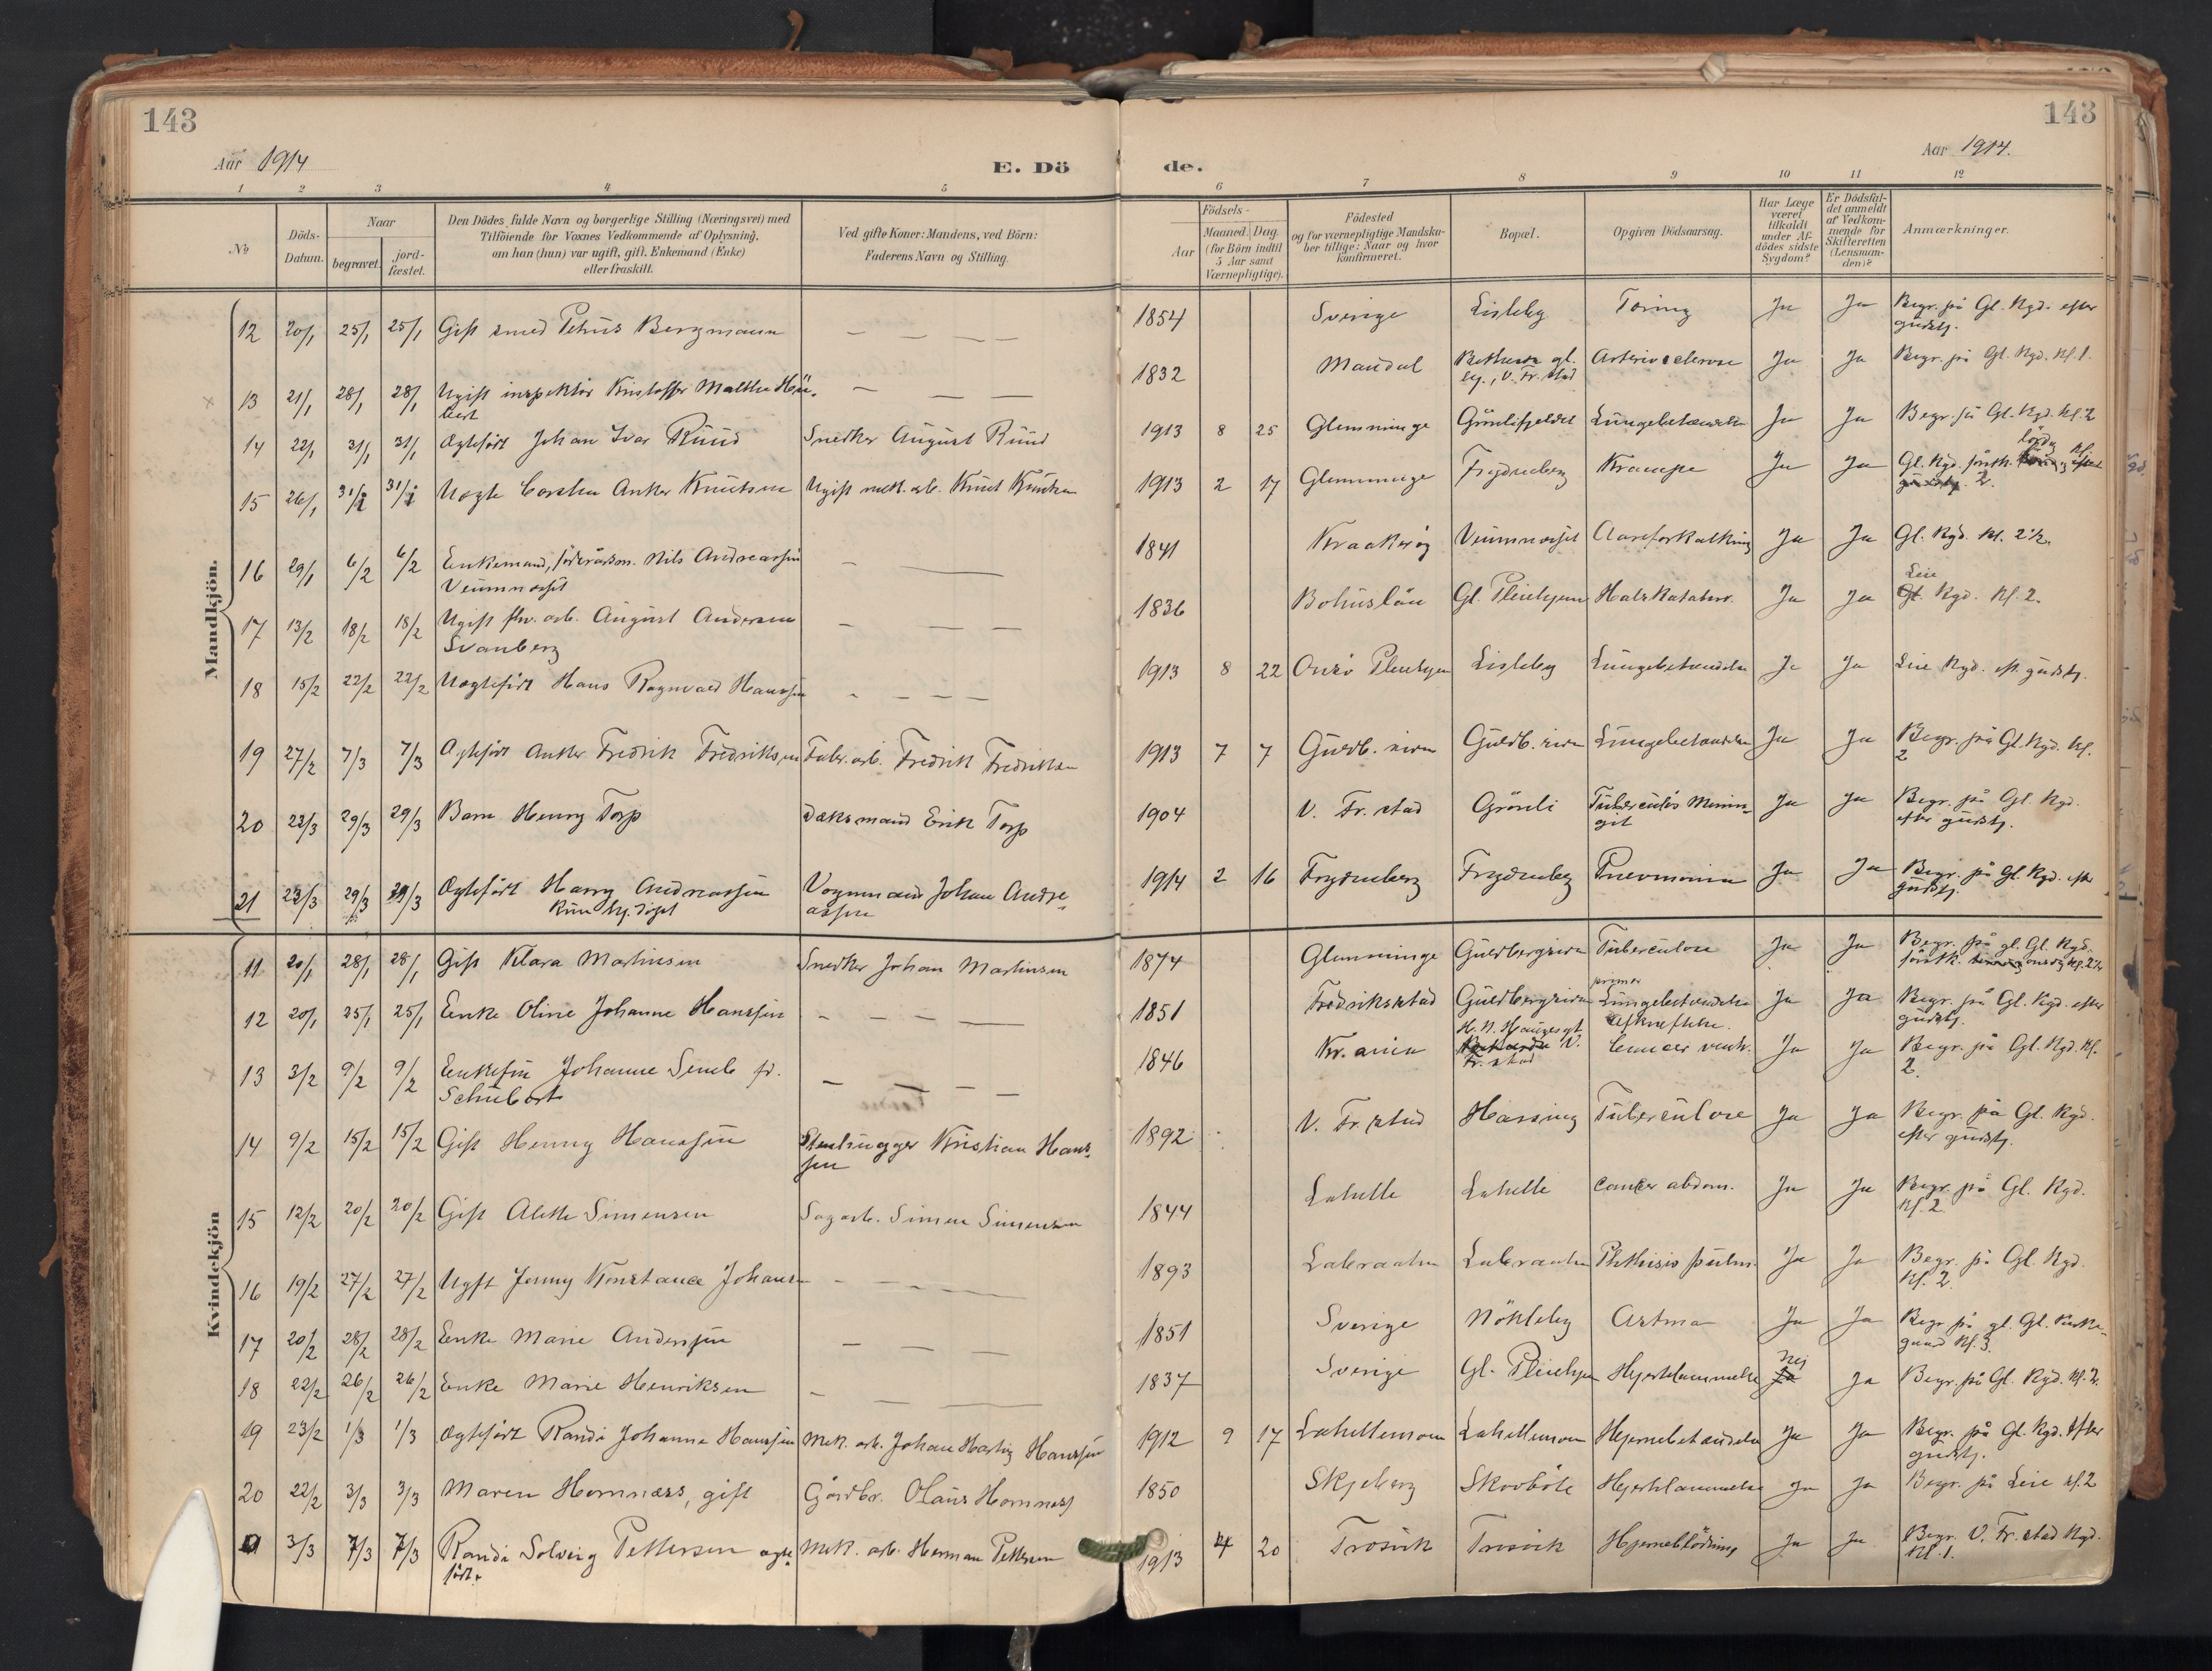 143
143
Aar 1914
E. Dö
de.
Aar 1914.
1 2 3 4 5 6 7 8 9 10 11 12
№
Döds-
Datum.
Naar
begravet.
jord-
fæstet.
Den Dödes fulde Navn og borgerlige Stilling (Næringsvei) med
Tilföiende for Voxnes Vedkommende af Oplysning,
om han (hun) var ugift, gift, Enkemand (Enke)
eller fraskilt.
Ved gifte Koner: Mandens, ved Börn:
Faderens Navn og Stilling.
Födsels-
Aar
Maaned. Dag.
(for Börn indtil
5 Aar samt
Værnepligtige).
Födested
og for værnepligtige Mandska-
ber tillige: Naar og hvor
konfirmeret.
Bopæl.
Opgiven Dödsaarsag.
Har Læge
været
tilkaldt
under Af-
dödes sidste
Sygdom?
Er Dödsfal-
det anmeldt
af Vedkom-
mende for
Skifteretten
(Lensman-
den)?
Anmærkninger.
Mandkjön.
12 20/1 25/1 25/1 Gift smed Petrus Bergmann — — — — 1854 Sverige Lisleby Tæring Ja Ja Begr. på Gl. Kgd. efter
gudstj.
13 21/1 28/1 28/1 Ugift inspektör Kristoffer Malthe Hü-
bert — — — 1832 Mandal gl.
V. Fr.stad Arteriosclerose Ja Ja Begr. på Gl. Kgd. Kl. 1.
14 22/1 31/1 31/1 Ægtefödt Johan Ivar Ruud Snedker August Ruud 1913 8 25 Glemminge Grönlifjeldet Lungebetændelse Ja Ja Begr. på Gl. Kgd. Kl. 2
15 26/1 31/1 31/1 Uægte Carsten Anker Knutsen Ugift mek. arb. Knut Knutsen 1913 2 17 Glemminge Frydenberg Krampe Ja Ja Gl. Kgd. förstk. lördag Kl.
2.
16 29/1 6/2 6/2 Enkemand, föderådsm. Nils Andreassen
Veumnæsset — — 1841 Kraakeröy Veumnæsset Aareforkalkning Ja Ja Gl. Kgd. Kl. 2½.
17 13/2 18/2 18/2 Ugift arb. August Andersen
Svanberg — — — 1836 Bohuslän Gl. Pleiehjem Halskatahrr. Ja Ja Leie
Kgd. Kl. 2.
18 15/2 22/2 22/2 Uægtefödt Hans Ragnvald Hanssen — — — — 1913 8 22 Onsö Pleiehjem Lisleby Lungebetændelse Ja Ja Leie Kgd. eft. gudstj.
19 27/2 7/3 7/3 Ægtefödt Anker Fredrik Fredriksen Fabr. arb. Fredrik Fredriksen 1913 7 7 Guldb. siden Guldb. siden Lungebetændelse Ja Ja Begr. på Gl. Kgd. Kl.
2
20 22/3 29/3 29/3 Barn Henry Torp Dæksmand Erik Torp 1904 V. Fr. stad Grönli Tuberculös Menin-
git Ja Ja Begr. på Gl. Kgd.
efter gudstj.
21 23/3 29/3 29/3 Ægtefödt Harry Andreassen
Kun hj. döpt Vognmand Johan Andre-
assen 1914 2 16 Frydenberg Frydenberg Pnevmonia Ja Ja Begr. på Gl. Kgd. efter
gudstj.
Kvindekjön
11 20/1 28/1 28/1 Gift Klara Martinsen Snedker Johan Martinsen 1874 Glemminge Guldbergsiden Tuberculose Ja Ja Begr. på gl. Gl. Kgd.
förstk. onsdag Kl. 2½
12 20/1 25/1 25/1 Enke Oline Johanne Hanssen — — — — 1851 Fredrikstad Guldbergsiden primær
Lungebetændelse
Ja Ja Begr. på Gl. Kgd. efter
gudstj.
13 3/2 9/2 9/2 Enkefru Johanne Semb fd.
Schubart — — — 1846 Kr.ania H. N. Hauges gt.
V.
Fr. stad Cancer ventr. Ja Ja Begr. på Gl. Kgd. Kl.
2.
14 9/2 15/2 15/2 Gift Henny Hanssen Stenhugger Kristian Hans-
sen 1892 V. Fr.stad Hassing Tuberculose Ja Ja Begr. på Gl. Kgd.
efter gudstj.
15 12/2 20/2 20/2 Gift Alette Simensen Sagarb. Simen Simensen 1844 Lahelle Lahelle Cancer abdom. Ja Ja Begr. på Gl. Kgd.
Kl. 2
16 19/2 27/2 27/2 Ugift Jenny Konstance Johansen — — — — 1893 Labraaten Labraaten Phthisis pulm. Ja Ja Begr. på Gl. Kgd.
Kl. 2
17 20/2 28/2 28/2 Enke Marie Anderssen — — — — 1851 Sverige Nökleby Astma Ja Ja Begr. på gl. Gl. Kirke-
gaard Kl. 3.
18 22/2 26/2 26/2 Enke Marie Henriksen — — — 1837 Sverige Gl. Pleiehjem Hjertelammelse Nej
Ja Ja Begr. på Gl. Kgd. Kl. 2.
19 23/2 1/3 1/3 Ægtefödt Randi Johanne Hanssen Mek. arb. Johan Hartvig Hanssen 1912 9 17 Lahellemoen Lahellemoen Hjernebetændelse Ja Ja Begr. på Gl. Kgd. Efter
gudstj.
20 22/2 3/3 3/3 Maren Hornnæss, gift Gårdbr. Olaus Hornnæss 1850 Skjeberg Skovböle Hjertelammelse Ja Ja Begr. på Leie kl. 2
3/3 7/3 7/3 Randi Solveig Pettersen ægte-
födt. Mek. arb. Herman Pettersen 1913 4 20 Trosvik Trosvik Hjerneblödning Ja Ja Begr. V. Fr.stad Kgd.
Kl. 1.